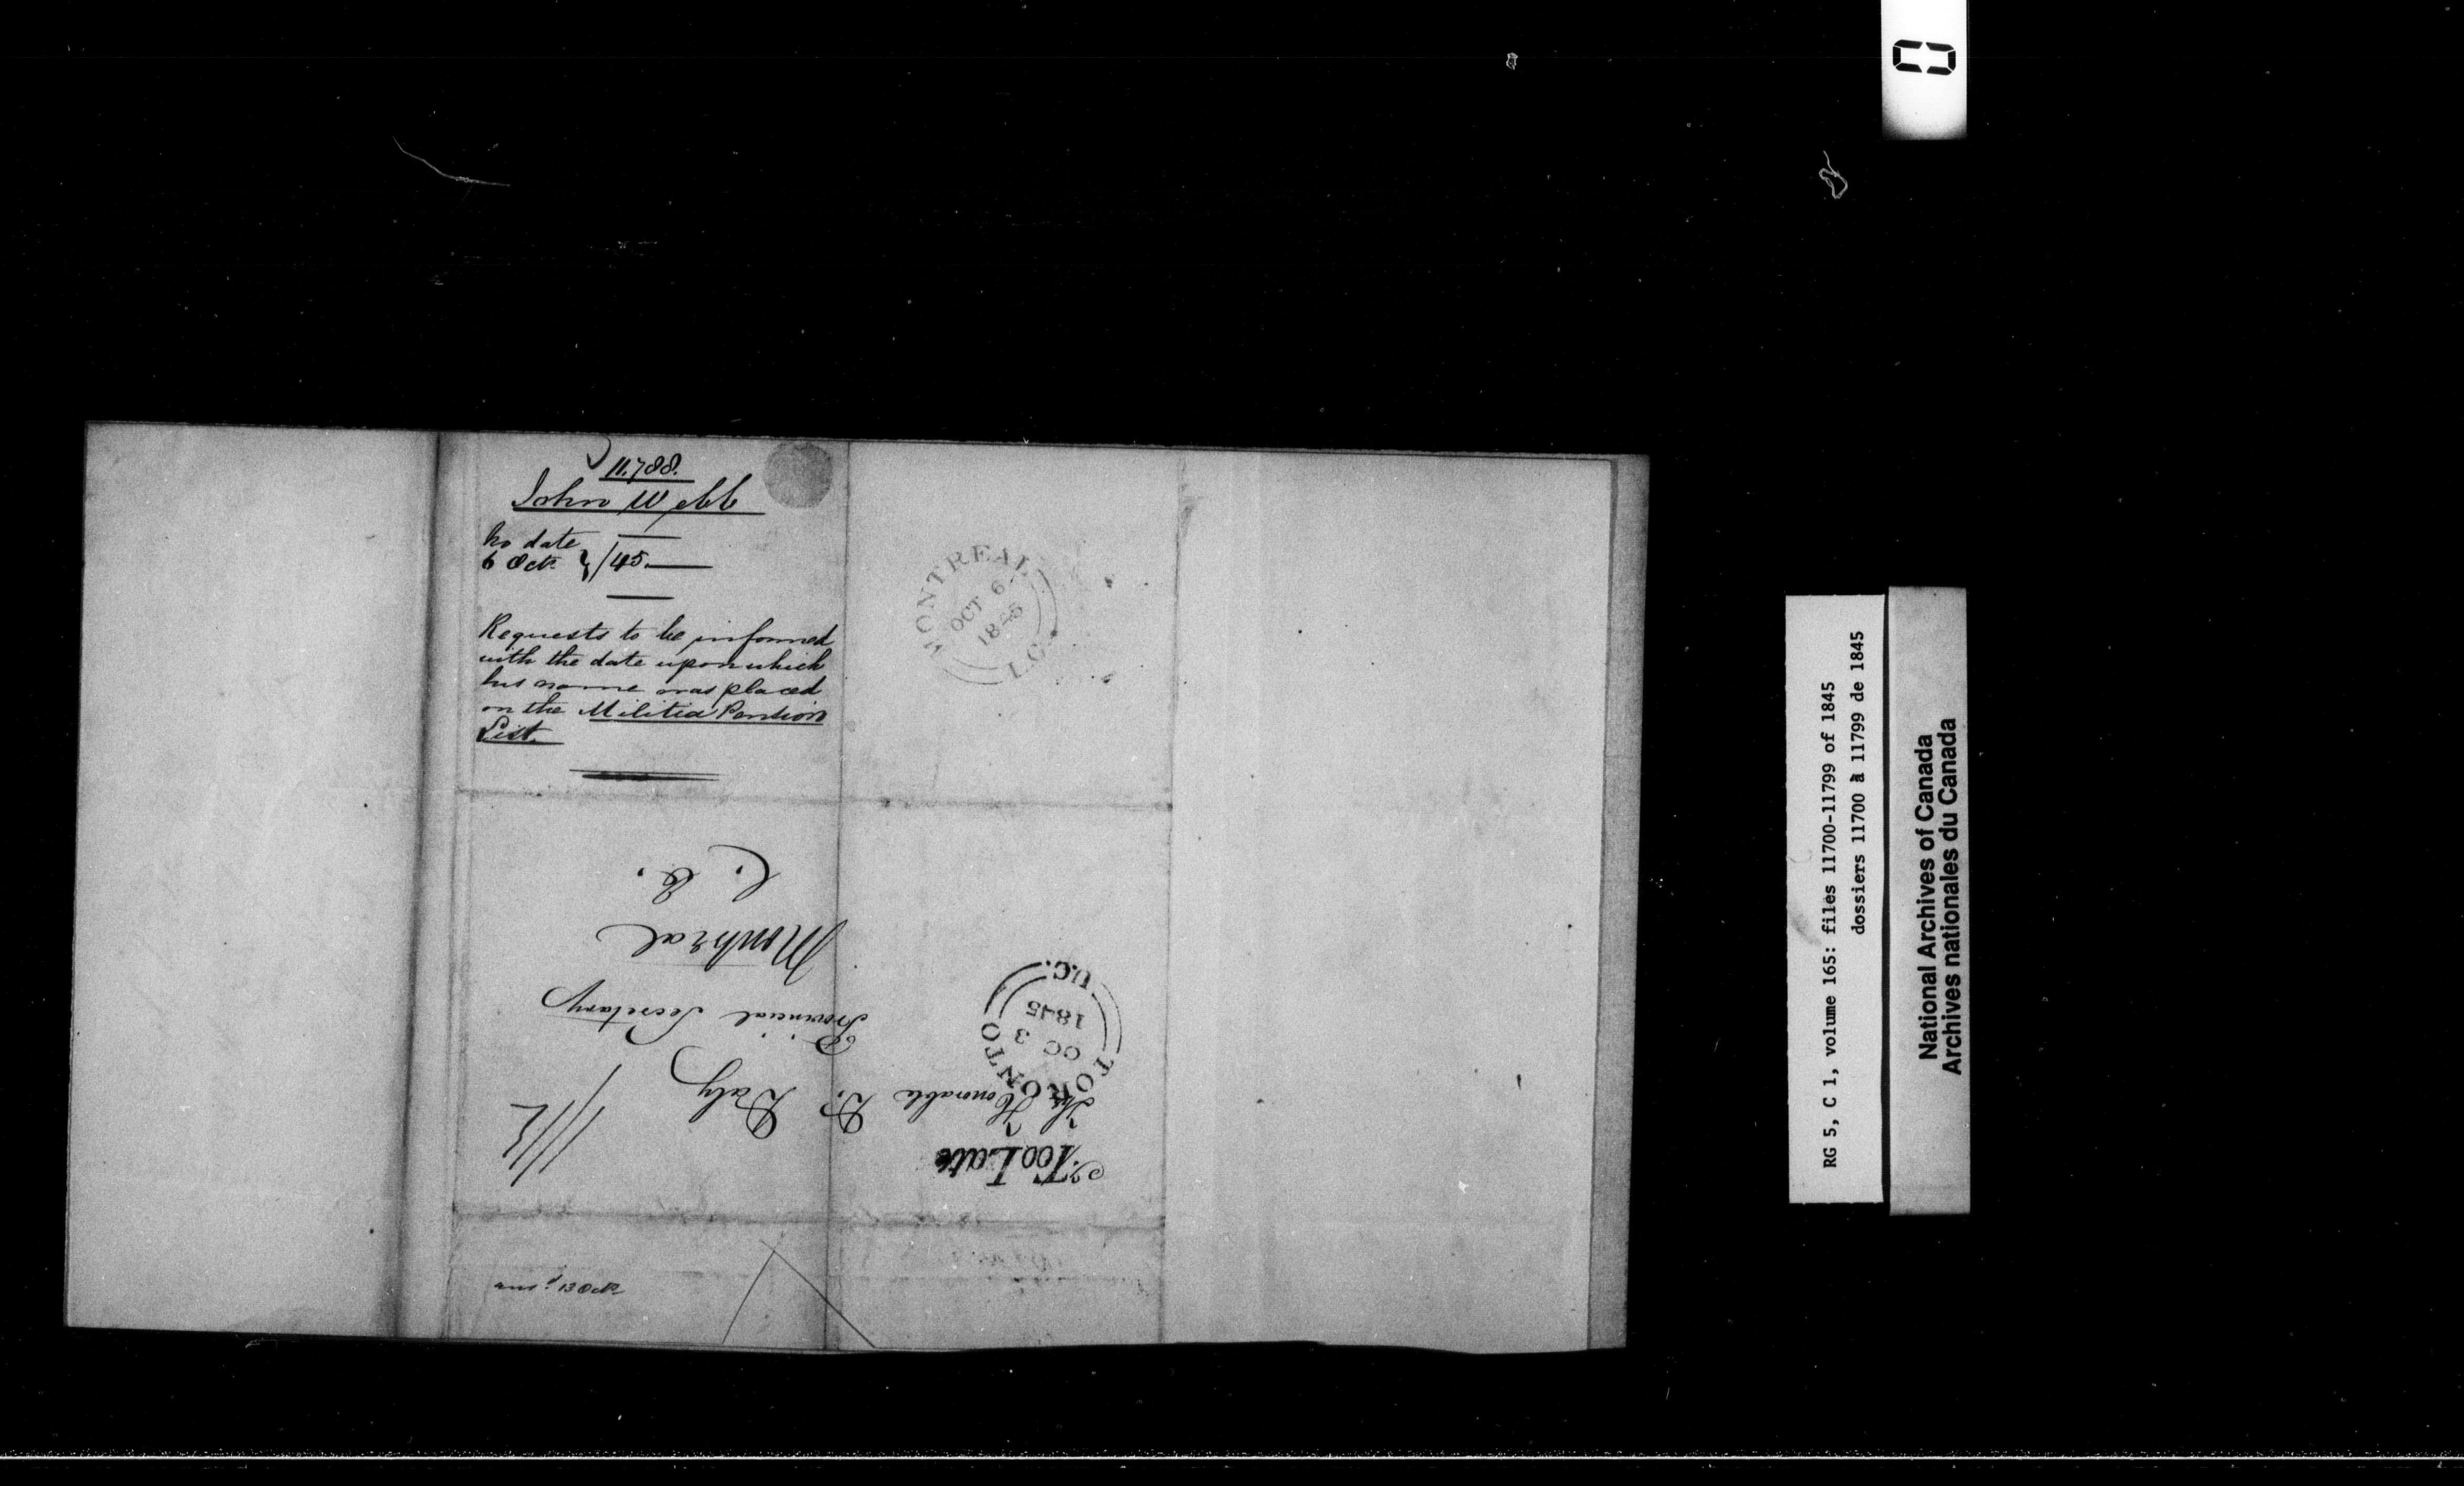 11.788.
John Webb
No date
6 Oct. } /45.
Requests to be informed
with the date upon which
his name was placed
on the Militia Pension
List.
MONTREAL
OCT 6
1845
L.C.
Too Late
The Honorable D. Daly
Provincial Secretary
Montreal
C. E.
TORONTO
OC 3
1845
U.C.
ansd. 13 Oct
RG 5, C 1, volume 165: files 11700-11799 of 1845
dossiers 11700 à 11799 de 1845
National Archives of Canada
Archives nationales du Canada